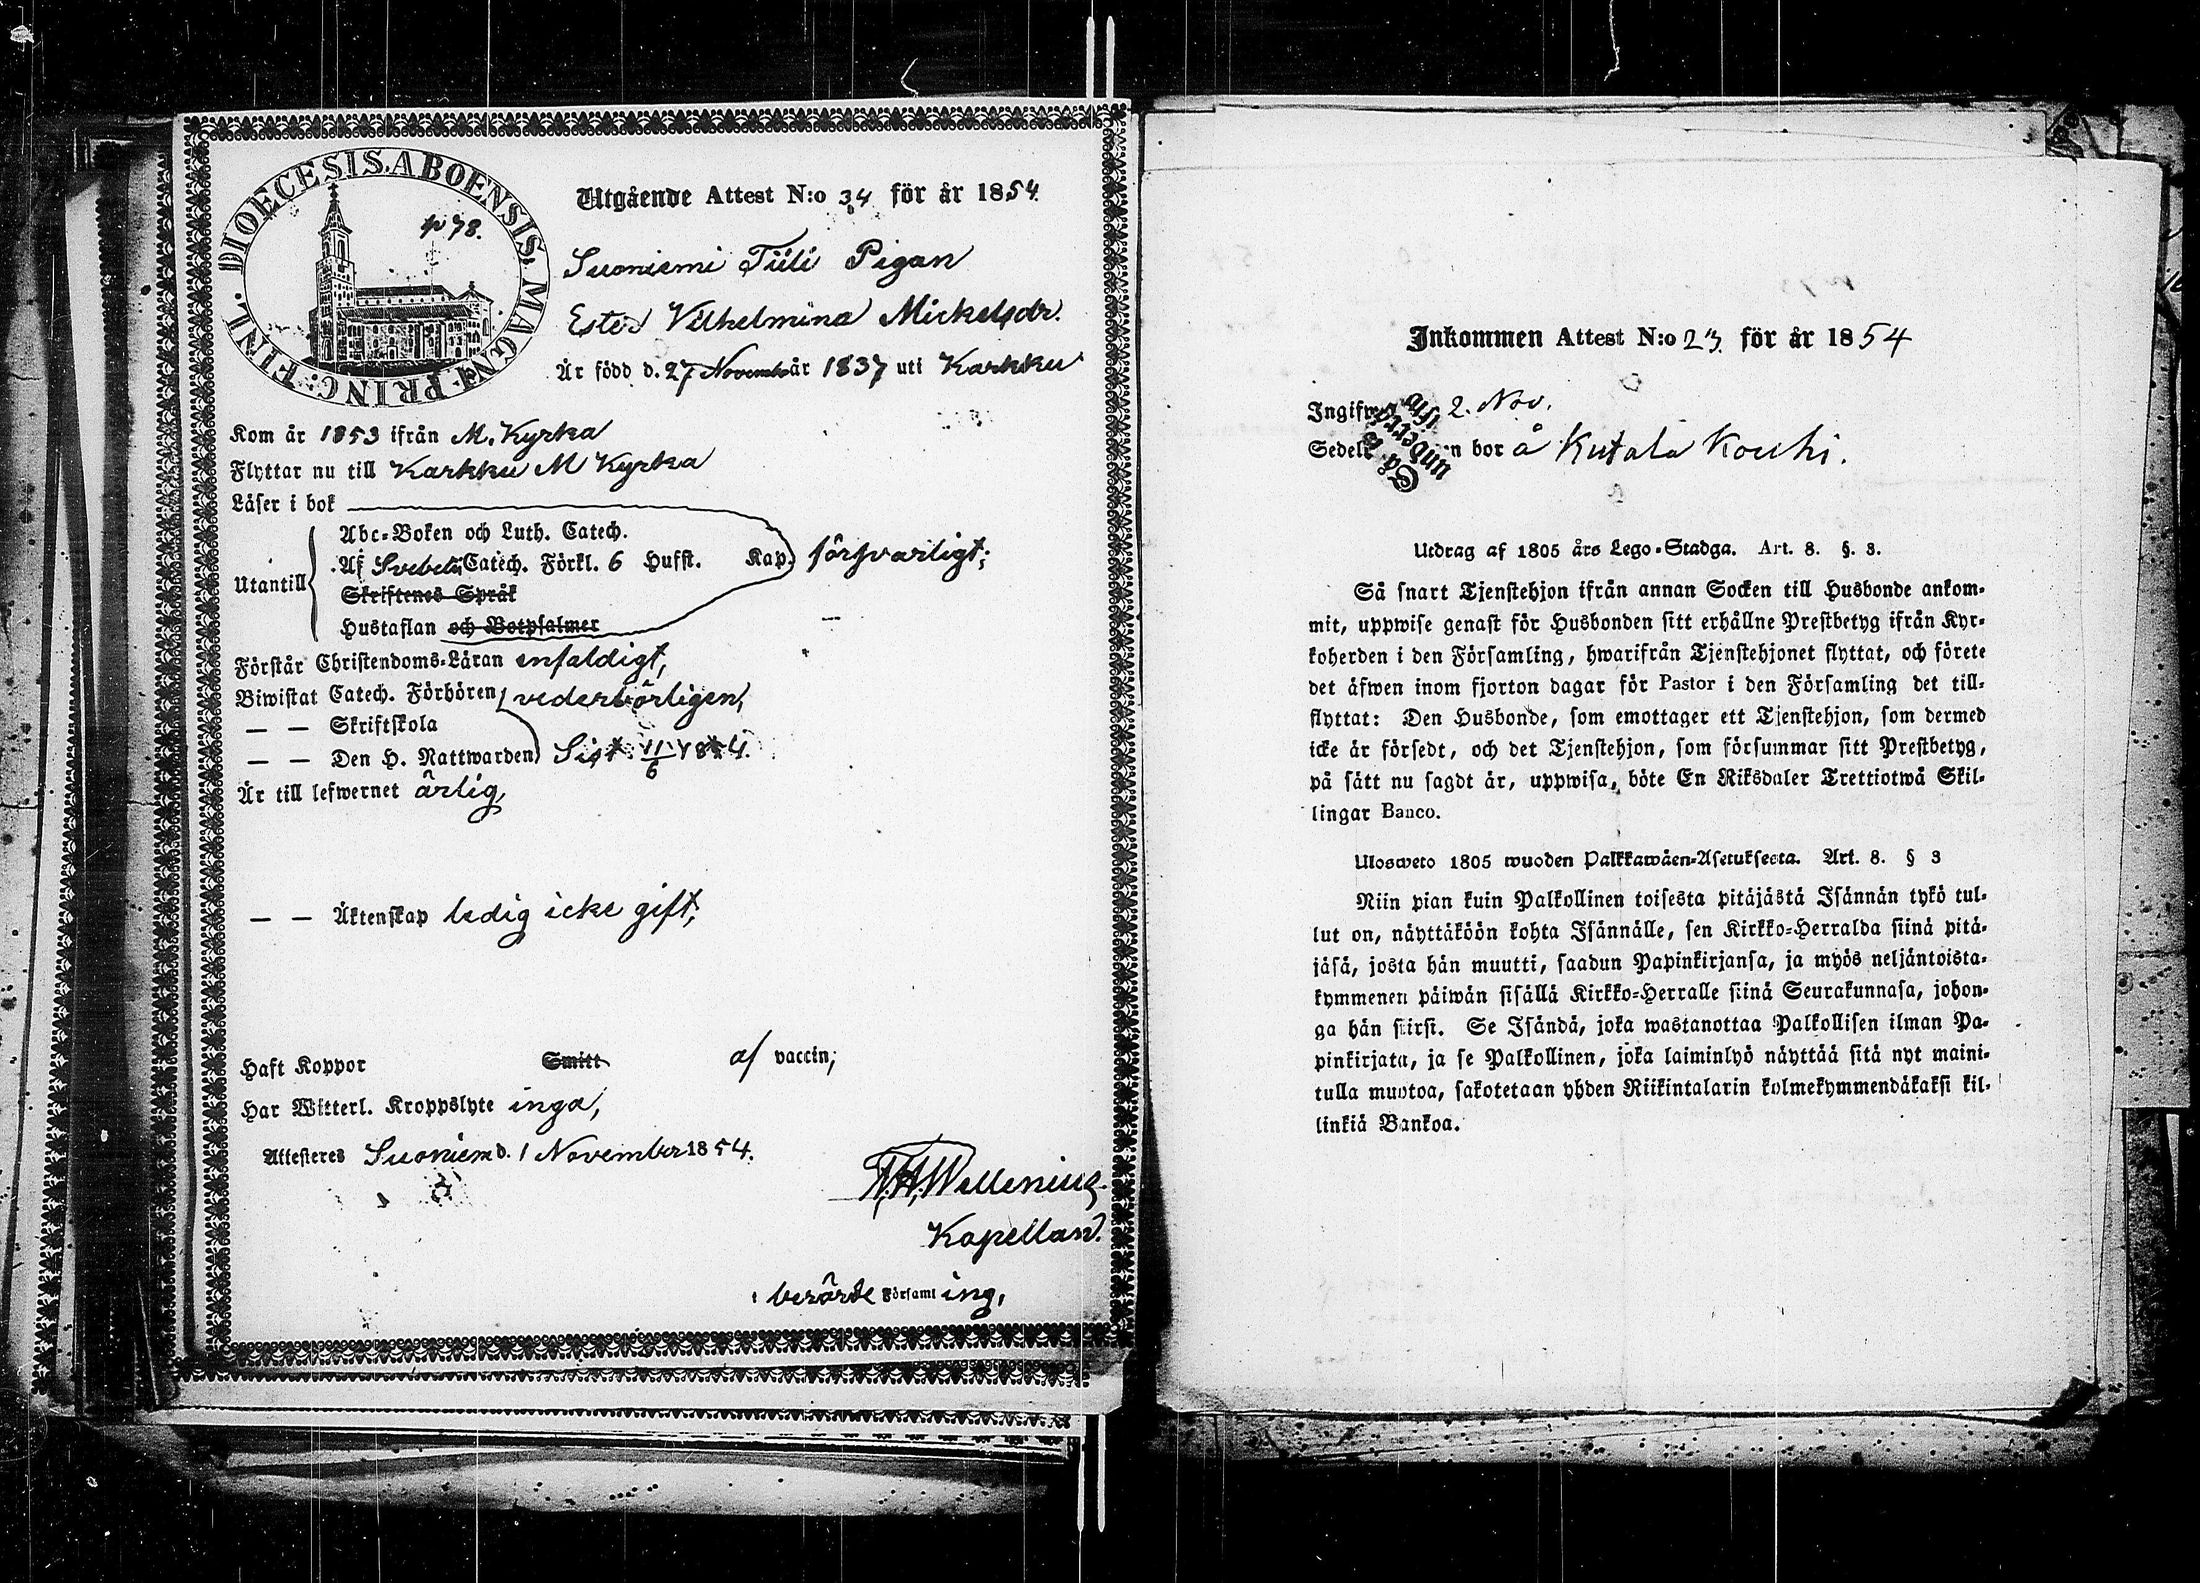 DIOECESIS. ABOENSIS. MAGNI PRINC: FINL.
p 78.
Utgående Attest N:o 34 för år 1854.
Suoniemi Tiili Pigan
Ester Vilhelmina Mickelsdr
Är född d. 27 Novemb år 1837 uti Karkku
Kom år 1853 ifrån M. Kyrka
Flyttar nu till Karkku M Kyrka
Läser i bok
Abc-Boken och Luth. Catech.
Utantill Af Svebelii Catech. Förkl. 6 Hufst. Kap. försvarligt;
Skriftenes Språk
Hustaflan och Botpsalmer
Förstår Christendoms-Läran enfaldigt,
Biwistat Catech. Förhören vederbörligen,
— — Skriftskola
— — Den H. Nattwarden Sist 11/6 1854.
Är till lefwernet ärlig,
— — Äktenskap ledig icke gift;
Haft Koppor Smitt af vaccin;
Har Witterl. Kroppslyte inga,
Attesteres Suoniem d. 1 November 1854.
Wallenius
Kapellan.
i berörde Församl ing,
Inkommen Attest N:o 23 för år 1854
Ingifwen 2. Nov.
Sedel n bor å Kutala Kouhi.
Så
underskrifta
Utdrag af 1805 års Lego-Stadga. Art. 8. §. 3.
Så snart Tjenstehjon ifrån annan Socken till Husbonde ankom-
mit, uppwise genast för Husbonden sitt erhållne Prestbetyg ifrån Kyr-
koherden i den Församling, hwarifrån Tjenstehjonet flyttat, och förete
det äfwen inom fjorton dagar för Pastor i den Församling det till-
flyttat: Den Husbonde, som emottager ett Tjenstehjon, som dermed
icke är försedt, och det Tjenstehjon, som försummar sitt Prestbetyg,
på sätt nu sagdt är, uppwisa, böte En Riksdaler Trettiotwå Skil-
lingar Banco.
Ulosweto 1805 wuoden Palkkawäen-Asetuksesta. Art. 8. § 3
Niin pian kuin Palkollinen toisesta pitäjästä Isännän tykö tul-
lut on, näyttäköön kohta Isännälle, sen Kirkko-Herralda siinä pitä-
jäsä, josta hän muutti, saadun Papinkirjansa, ja myös neljäntoista-
kymmenen päiwän sisällä Kirkko-Herralle siinä Seurakunnasa, johon-
ga hän siirsi. Se Isändä, joka wastanottaa Palkollisen ilman Pa-
pinkirjata, ja se Palkollinen, joka laiminlyö näyttää sitä nyt maini-
tulla muotoa, sakotetaan yhden Riikintalarin kolmekymmendäkaksi kil-
linkiä Bankoa.